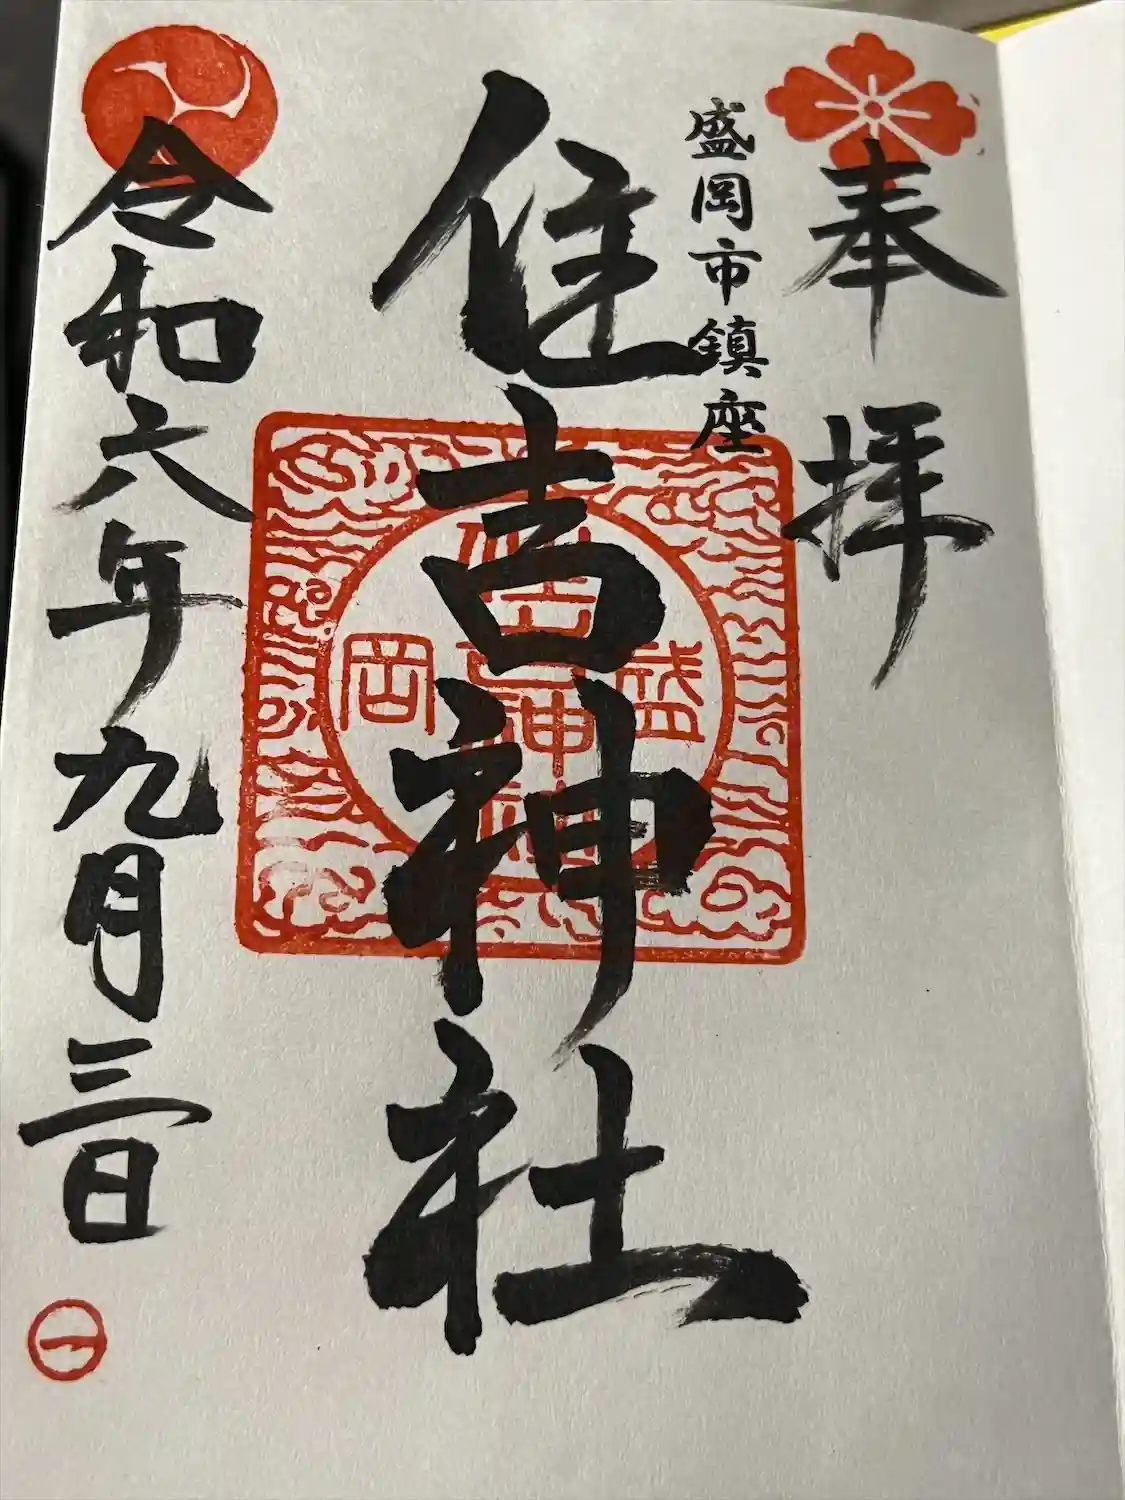 奉拝
盛岡市鎮座
住吉神社
盛岡
住吉神社
令和六年九月三日
一